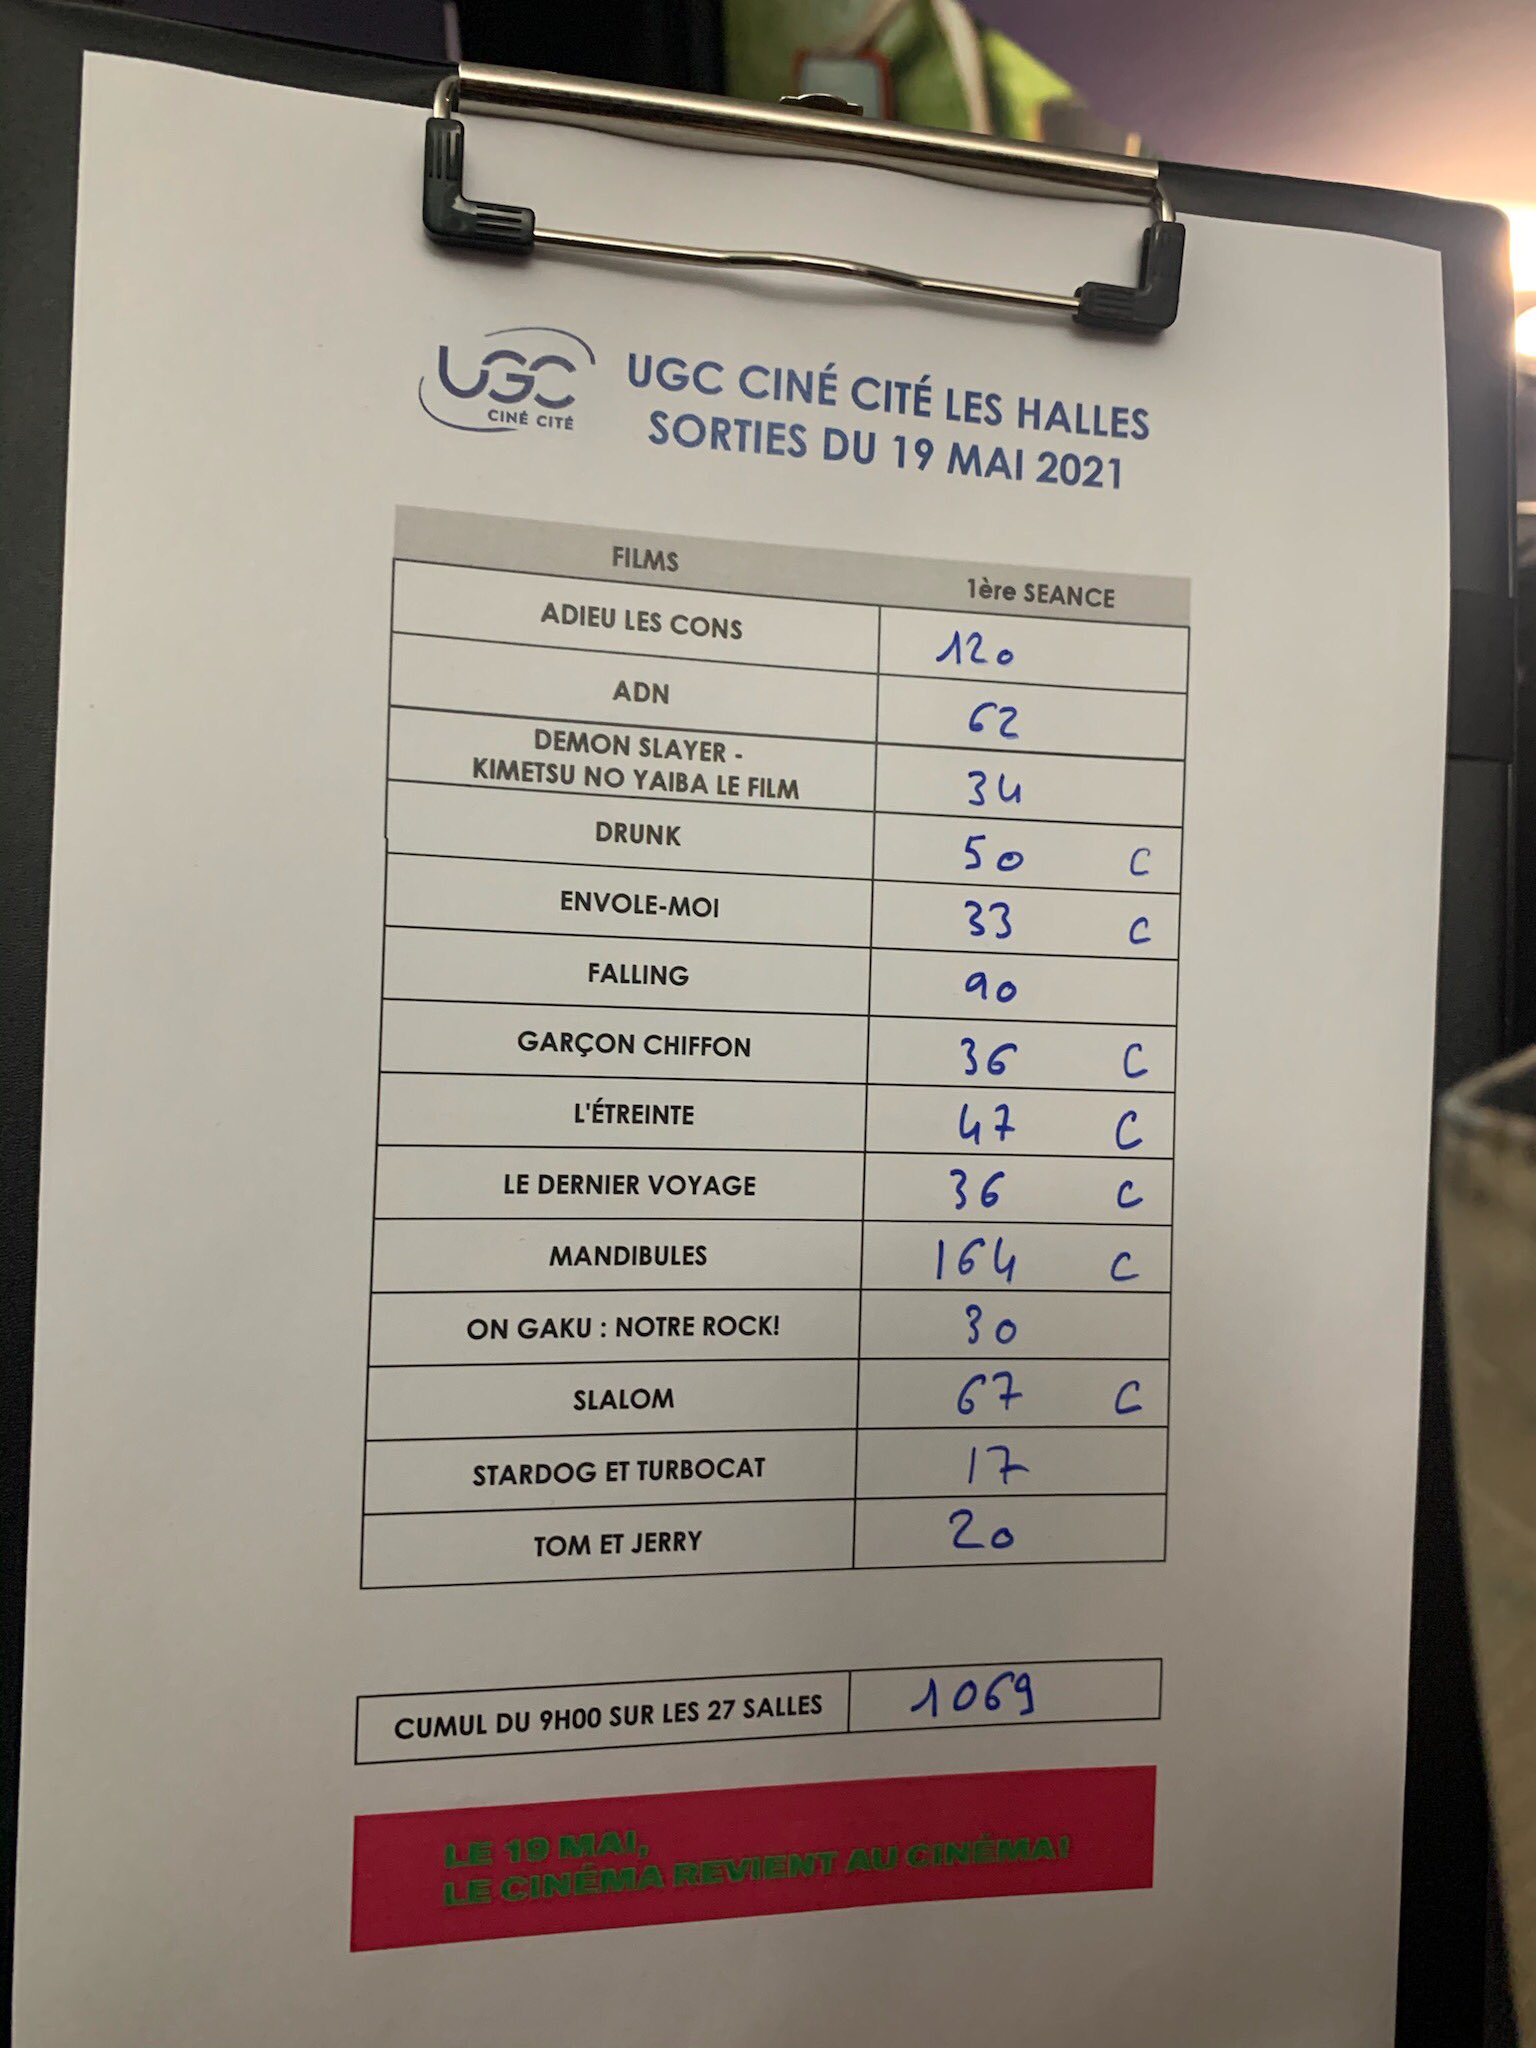 UGC
CINÉ CITÉ
UGC CINÉ CITÉ LES HALLES
SORTIES DU 19 MAI 2021
FILMS 1ère SEANCE
ADIEU LES CONS 120
ADN 62
DEMON SLAYER -
KIMETSU NO YAIBA LE FILM 34
DRUNK 50 C
ENVOLE-MOI 33 C
FALLING 90
GARÇON CHIFFON 36 C
L'ÉTREINTE 47 C
LE DERNIER VOYAGE 36 C
MANDIBULES 164 C
ON GAKU : NOTRE ROCK! 30
SLALOM 67 C
STARDOG ET TURBOCAT 17
TOM ET JERRY 20
CUMUL DU 9H00 SUR LES 27 SALLES 1069
LE 19 MAI,
LE CINÉMA REVIENT AU CINÉMA!